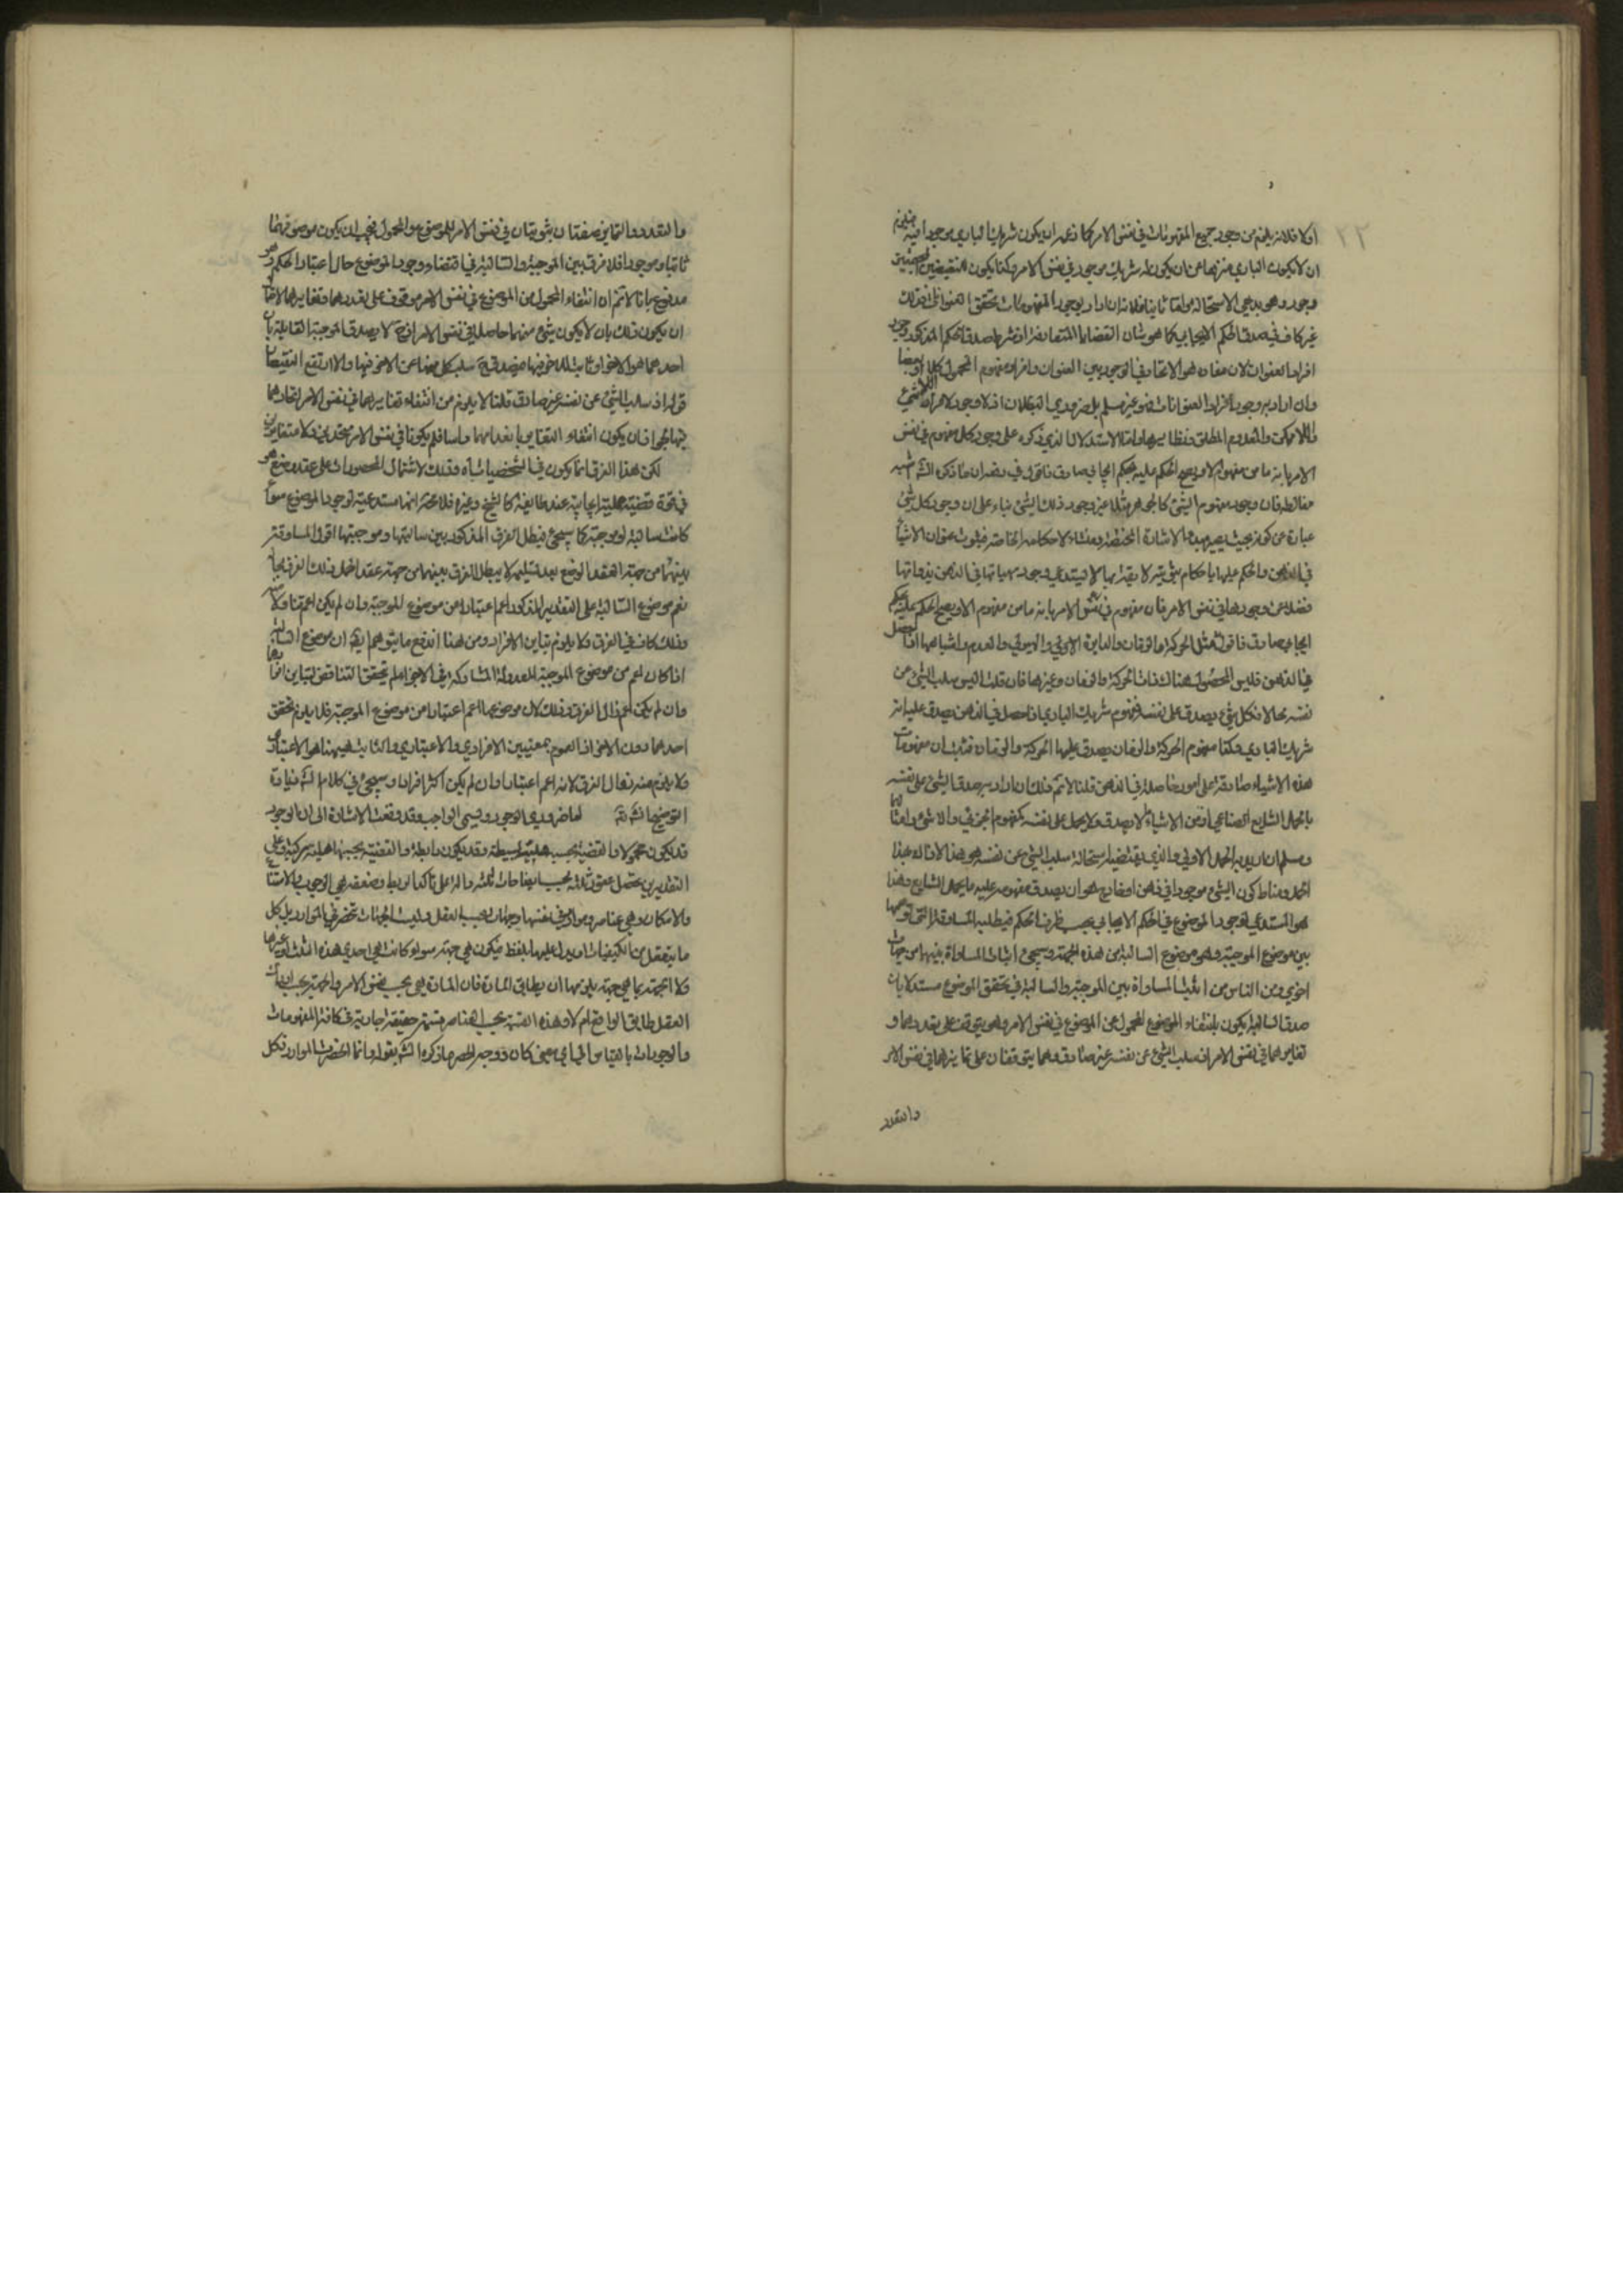 ٢٢
اولا فلانه يلزم من وجود جميع المفهومات في نفس الامر كما ذكره ان يكون شريك الباري موجودا فيه فيلزم
ان لا يكون الباري منزها عن ان يكون له شريك موجود في نفس الامر وكذا يكون النقيضين
وجود وهو بديهي الاستحالة واما ثانيا فلانه ان اراد بوجود المفهومات تحقق العنوانات فذلك
غير كاف في صدق الحكم الايجابي كما هو شان القضايا المتعارفة اذ شرط صدق الحكم المذكور وجود
افراد العنوان لان مفاده هو الاتحاد في الوجود بين العنوان وافراد مفهوم المحمول كلا او بعضا
وان اراد به وجود افراد العنوانات فهو غير مسلم بل ضروري البطلان اذ لا وجود لافراد اللاشيء
واللاممكن والمعدوم المطلق ونظايرها واما الاستدلال الذي ذكره على وجود كل مفهوم في نفس
الامر بانه ما من مفهوم الا ويصح الحكم عليه بحكم ايجابي صادق فاقول فيه نظر ان ما ذكره الش شبه
مغالطة فان وجود مفهوم الشيء كالجوهر مثلا غير وجود ذلك الشيء بناء على ان وجود كل شيء
عبارة عن كونه بحيث يصير مبدءا لاثاره المختصة ومنشاء لاحكامه الخاصة فثبوت عنوان الاشياء
في الذهن والحكم عليها باحكام ثبوتية لا يستدعي وجود مهياتها في الذهن بذواتها
فضلا عن وجودها في نفس الامر فان مفهوم في نفس الامر بانه ما من مفهوم الا ويصح الحكم عليه بحكم
ايجابي صادق فاقول مثل الحركة والزمان والدايرة والعدم واشباهها اذا حصل
في الذهن فليس الحصول هناك ذات الحركة والزمان وغيرها فان قلت اليس سلب الشيء عن
نفسه محالا فكل شيء يصدق على نفسه فمفهوم شريك الباري اذا حصل في الذهن يصدق عليه انه
شريك الباري وكذا مفهوم الحركة والزمان يصدق عليها الحركة والزمان فثبت ان مفهومات
هذه الاشياء صادقة على امور حاصلة في الذهن قلنا لا نم ذلك ان اراد به صدق الشيء على نفسه
بالحمل الشايع الصناعي اذ من الاشياء ما لا يصدق ولا يحمل على نفسه كمفهوم الجزئي واللاشيء وامثالها
ومسلم ان اريد به الحمل الاولي والذي يقتضيه استحالة سلب الشيء عن نفسه هو هذا لا ذاك هذا
الحمل ومناط كون الشيء موجودا في ذهن او خارج هو ان يصدق مفهومه عليه بالحمل الشايع وهذا
هو المستدعي لوجود الموضوع في الحكم الايجابي بحسب ظرف الحكم فبطل المساوقة التي توهمها
بين موضوع الموجبة وهو موضوع السالبة من هذه الجهة وسيجيء اثبات المساواة بينهما من جهات
اخرى ومن الناس من اثبت المساواة بين الموجبة والسالبة في تحقق الموضوع مستدلا بان
صدق السالبة يكون بانتفاء الموضوع المحمول عن الموضوع في نفس الامر وهو يتوقف على تعددهما و
تغايرهما في نفس الامر اذ سلب الشيء عن نفسه غير صادق وهما يتوقفان على تمايزهما في نفس الامر
والتعدد
والتعدد والتمايز صفتان ثبوتيتان في نفس الامر للموضوع والمحمول فيجب ان يكون موصوفهما
ثابتا وموجودا فلا فرق بين الموجبة والسالبة في اقتضاء وجود الموضوع حال اعتبار الحكم وهو
مدفوع بانا لا نم ان انتفاء المحمول من الموضوع في نفس الامر موقوف على تعددهما وتغايرهما لاحتمال
ان يكون ذلك بان لا يكون شيء منهما حاصلا في نفس الامر اذ ح لا يصدق الموجبة القايلة بان
احدهما هو الاخر او ثابت للاخر فيها فيصدق ح سلب كل منهما عن الاخر فيها والا ارتفع النقيضان
قوله اذ سلب الشيء عن نفسه غير صادق قلنا لا يلزم من انتفاء تغايرهما في نفس الامر اتحادهما
فيها لجواز ان يكون انتفاء التغاير بانعدامهما راسا فلم يكونا في نفس الامر متحدين ولا متغايرين
لكن هذا الفرق انما يكون في الشخصيات وذلك لاشتمال المحصورات على عقد وضع هو
في قوة قضية حملية ايجابية عند طايفة كالشيخ وغيره فلا محة انها مستدعية لوجود الموضوع سواء
كانت سالبة او موجبة كما سيجيء فبطل الفرق المذكور بين سالبتها وموجبتها اقول المساوقة
بينهما من جهة العقد الوضع بعد تسليمه لا يبطل الفرق بينهما من جهة عقد الحمل وذلك الفرق بحاله
نعم موضوع السالبة على التقدير المذكور اعم اعتبارا من موضوع الموجبة وان لم يكن اعم تناولا
وذلك كاف في الفرق ولا يلزم تباين الافراد ومن هنا اندفع ما يتوهم ان موضوع السالبة
اذا كان اعم من موضوع الموجبة المعدولة المشاركة في الاجزاء لم يتحقق التناقض لتباين افرادهما
وان لم يكن اعم زال الفرق وذلك لان موضوعها اعم اعتبارا من موضوع الموجبة فلا يلزم تحقق
احدهما دون الاخر اذ العموم بمعنيين الافرادي والاعتباري والثابت هيهنا هو الاعتباري
ولا يلزم منه زوال الفرق لانه اعم اعتبارا وان لم يكن اكثر افرادا وسيجيء في كلام الش زيادة
التوضيح انشاء الله اما ضروري الوجود ويسمى الواجب وقد وقعت الاشارة الى ان الوجود
قد يكون محمولا والقضية بحسبه هلية بسيطة وقد يكون رابطة والقضية بحسبها هلية مركبة وعلى
التقديرين يحصل عقود ثلثة بحسب كيفيات ثلثة دالة على تاكد الربط وضعفه هي الوجوب والامتناع
والامكان وهي عناصر ومواد في نفسها وجهات بحسب العقل وليست الجهات تنحصر في المواد بل كل
ما يتعقل من الكيفيات او يدل عليها بلفظ فيكون هي جهة سواء كانت هي احدى هذه الثلث او غيرها
ولا الجهة بما هي جهة يلزمها ان يطابق المادة فان المادة هي بحسب نفس الامر والجهة بحسب ادراك
العقل طابق الواقع ام لا وهذه القسمة بحسب العناصر قسمة حقيقة جارية في كافة المفهومات
والوجودات بالقياس الى اي معنى كان ووجه الحصر ما ذكره الش بقوله وانما انحصرت المواد فكل